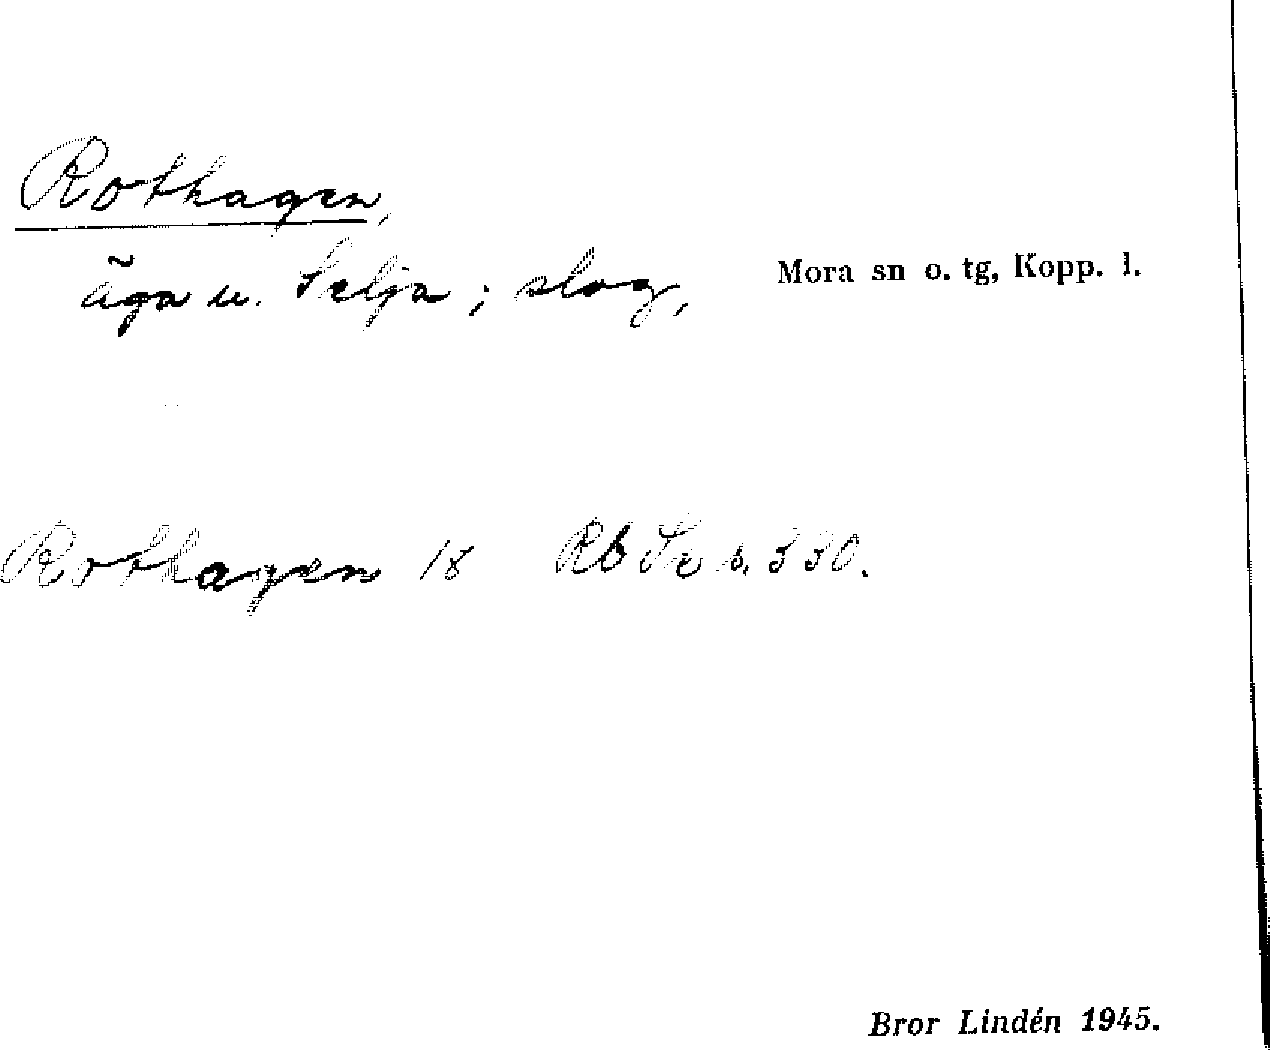 Rothagen,
äga u. Selja; slog,
Mora sn o. tg, Kopp. l.
Rothagen 18 Rb Se s. 330.
Bror Lindén 1945.